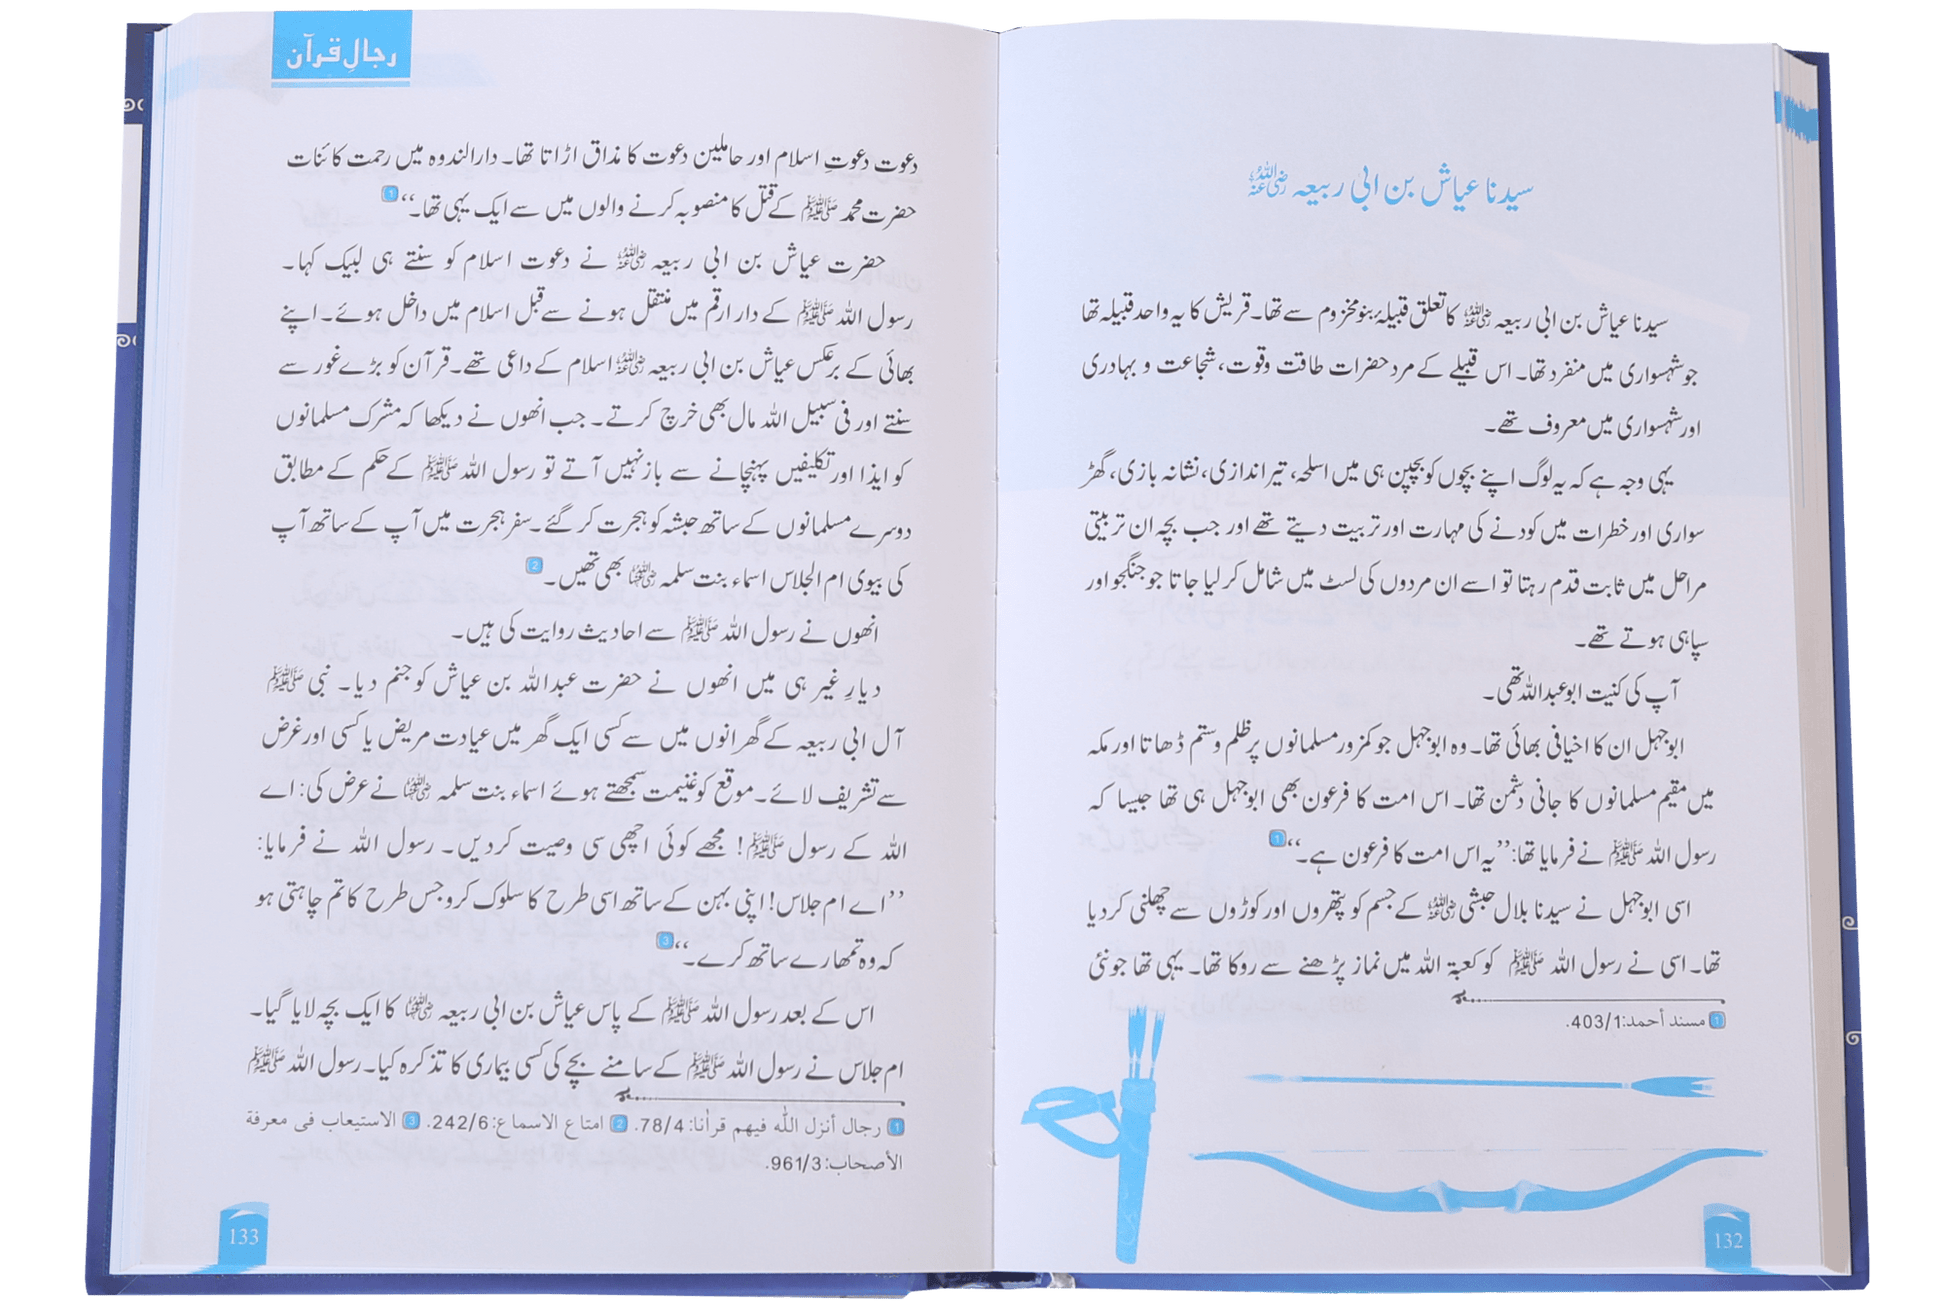 سیدنا عیاش بن ابی ربیعہ رضی اللہ عنہ
سیدنا عیاش بن ابی ربیعہ رضی اللہ عنہ کا تعلق قبیلۂ بنو مخزوم سے تھا۔ قریش کا یہ واحد قبیلہ تھا
جو شہسواری میں منفرد تھا۔ اس قبیلے کے مرد حضرات طاقت وقوت، شجاعت و بہادری
اور شہسواری میں معروف تھے۔
یہی وجہ ہے کہ یہ لوگ اپنے بچوں کو بچپن ہی میں اسلحہ، تیر اندازی، نشانہ بازی، گھڑ
سواری اور خطرات میں کودنے کی مہارت اور تربیت دیتے تھے اور جب بچہ ان تربیتی
مراحل میں ثابت قدم رہتا تو اسے ان مردوں کی لسٹ میں شامل کر لیا جاتا جو جنگجو اور
سپاہی ہوتے تھے۔
آپ کی کنیت ابو عبداللہ تھی۔
ابو جہل ان کا اخیافی بھائی تھا۔ وہ ابو جہل جو کمزور مسلمانوں پر ظلم و ستم ڈھاتا اور مکہ
میں مقیم مسلمانوں کا جانی دشمن تھا۔ اس امت کا فرعون بھی ابو جہل ہی تھا جیسا کہ
رسول اللہ ﷺ نے فرمایا تھا: ’’یہ اس امت کا فرعون ہے۔‘‘ 1
اسی ابو جہل نے سیدنا بلال حبشی رضی اللہ عنہ کے جسم کو پتھروں اور کوڑوں سے چھلنی کر دیا
تھا۔ اسی نے رسول اللہ ﷺ کو کعبۃ اللہ میں نماز پڑھنے سے روکا تھا۔ یہی تھا جو نئی
1 مسند أحمد: 403/1.
132
رجالِ قرآن
دعوت دعوتِ اسلام اور حاملین دعوت کا مذاق اڑاتا تھا۔ دارالندوہ میں رحمت کائنات
حضرت محمد ﷺ کے قتل کا منصوبہ کرنے والوں میں سے ایک یہی تھا۔‘‘ 1
حضرت عیاش بن ابی ربیعہ رضی اللہ عنہ نے دعوت اسلام کو سنتے ہی لبیک کہا۔
رسول اللہ ﷺ کے دار ارقم میں منتقل ہونے سے قبل اسلام میں داخل ہوئے۔ اپنے
بھائی کے برعکس عیاش بن ابی ربیعہ رضی اللہ عنہ اسلام کے داعی تھے۔ قرآن کو بڑے غور سے
سنتے اور فی سبیل اللہ مال بھی خرچ کرتے۔ جب انھوں نے دیکھا کہ مشرک مسلمانوں
کو ایذا اور تکلیفیں پہنچانے سے باز نہیں آتے تو رسول اللہ ﷺ کے حکم کے مطابق
دوسرے مسلمانوں کے ساتھ حبشہ کو ہجرت کر گئے۔ سفر ہجرت میں آپ کے ساتھ آپ
کی بیوی ام الجلاس اسماء بنت سلمہ رضی اللہ عنہا بھی تھیں۔ 2
انھوں نے رسول اللہ ﷺ سے احادیث روایت کی ہیں۔
دیارِ غیر ہی میں انھوں نے حضرت عبداللہ بن عیاش کو جنم دیا۔ نبی ﷺ
آل ابی ربیعہ کے گھرانوں میں سے کسی ایک گھر میں عیادت مریض یا کسی اور غرض
سے تشریف لائے۔ موقع کو غنیمت سمجھتے ہوئے اسماء بنت سلمہ رضی اللہ عنہا نے عرض کی: اے
اللہ کے رسول ﷺ! مجھے کوئی اچھی سی وصیت کر دیں۔ رسول اللہ نے فرمایا:
’’اے ام جلاس! اپنی بہن کے ساتھ اسی طرح کا سلوک کرو جس طرح کا تم چاہتی ہو
کہ وہ تمھارے ساتھ کرے۔‘‘ 3
اس کے بعد رسول اللہ ﷺ کے پاس عیاش بن ابی ربیعہ رضی اللہ عنہما کا ایک بچہ لایا گیا۔
ام جلاس نے رسول اللہ ﷺ کے سامنے بچے کی کسی بیماری کا تذکرہ کیا۔ رسول اللہ ﷺ
1 رجال أنزل اللّٰہ فیهم قرأنا: 78/4. 2 امتاع الاسماع: 242/6. 3 الاستیعاب فی معرفة
الأصحاب: 961/3.
133